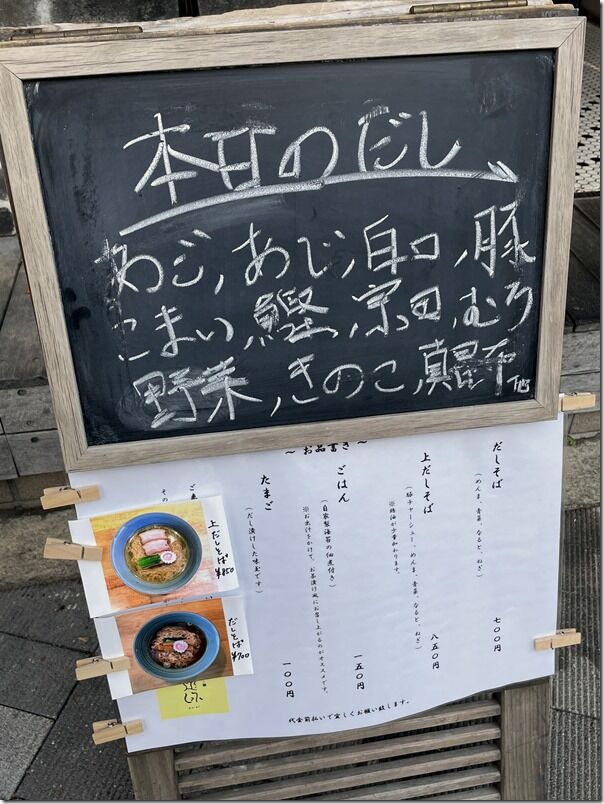 本日のだし
あご、あじ、白口、豚
こまい、鰹、宗田、むろ
野菜、きのこ、真昆布
〜 お品書き 〜
だしそば
(めんま、青菜、なると、ねぎ)
七〇〇円
上だしそば
(豚チャーシュー、めんま、青菜、なると、ねぎ)
※鶏油が少量加わります。
八五〇円
ごはん
(自家製海苔の佃煮付き)
※お出汁をかけて、お茶漬け風にお召し上がるのがオススメです。
一五〇円
たまご
(だし漬けした味玉です)
一〇〇円
代金前払いで宜しくお願い致します。
上だしそば
¥850
だしそば
¥700